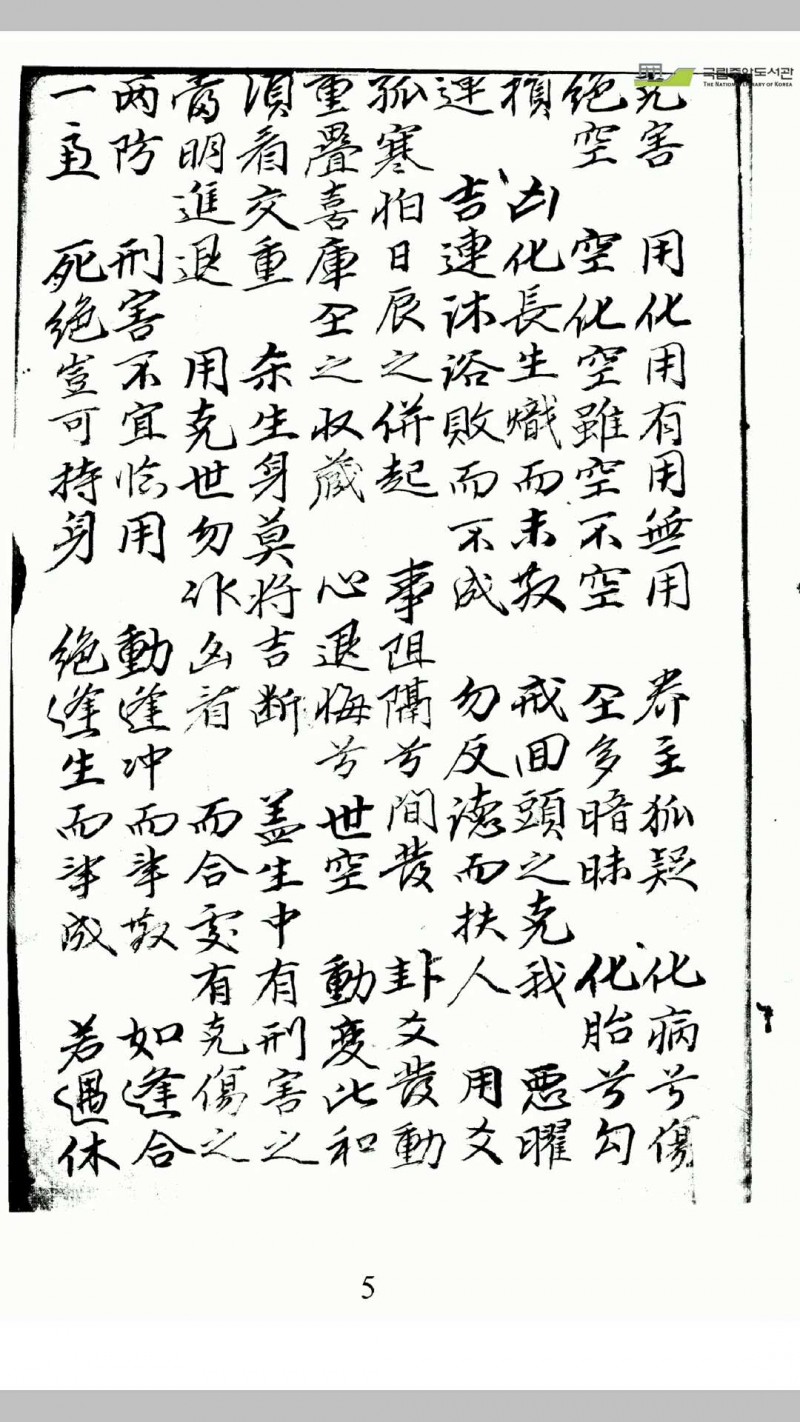 국립중앙도서관
THE NATIONAL LIBRARY OF KOREA
克害 用化用有用無用 养主狐疑 化病兮傷
絶空 空化空雖空不空 全多暗昧 化胎兮勾
損 凶化長生熾而未散 戒回頭之克我 悪曜
連 吉連沐浴敗而不成 勿反德而扶人 用爻
孤寒怕日辰之併起 事阻隔兮間發 卦爻發動
重疊喜庫全之収蔵 心退悔兮世空 動變比和
須看交重 杀生身莫将吉断 盖生中有刑害之
當明進退 用克世勿作凶看 而合處有克傷之
两防 刑害不宜临用 動逢冲而事散 如逢合
一主 死絶豈可持身 絶逢生而事成 若遇休
5